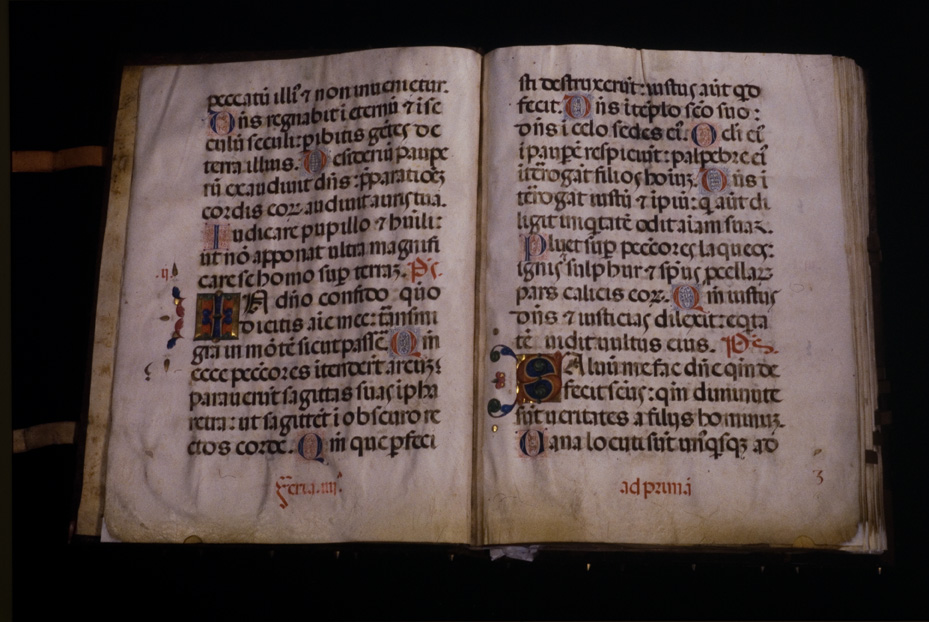 peccatū illi⁹ ⁊ non invenietur.
Dn̄s regnabit ī eternū ⁊ ī se
culū seculi: ꝑibitis gētes de
terra illius. Desideriū paupe
rū exaudivit dn̄s: p̄paratioēꝫ
cordis coꝝ audivit auris tua.
Iudicare pupillo ⁊ hūili:
ut nō apponat ultra magnifi
care se homo suꝑ terraꝫ. Ps.
.ij.
In dn̄o confido quō
dicitis aīe mee: trāsmi
gra in mōtē sicut passeꝝ. Qm̄
ecce pecc̄ores ītenderūt arcuꝫ:
paraverūt sagittas suas ī pha
retra: ut sagittēt ī obscuro re
ctos corde. Qm̄ que ꝑfeci
feria .iiij.
sti destruxerūt: iustus aūt qd̄
fecit. Dn̄s ī tēplo sc̄o suo:
dn̄s ī celo sedes ei⁹. Ocli ei⁹
ī pauꝑē respiciūt: palpebre ei⁹
īterrogāt filios hoīuꝫ. Dn̄s ī
terrogat iustū ⁊ īpiū: q̄ aūt di
ligit iniq̄tatē odit aīam suaꝫ.
Pluet suꝑ pecc̄ores laqueos:
ignis sulphur ⁊ sp̄us ꝓcellaꝝ
pars calicis eoꝝ. Qm̄ iustus
dn̄s ⁊ iusticias dilexit: eq̄ta
tē vidit vultus eius. Ps.
Salvū me fac dn̄e qm̄ de
fecit sc̄us: qm̄ diminute
sūt veritates a filiis hominuꝫ.
Vana locuti sūt unusq̄sqꝫ ad
ad primā
3